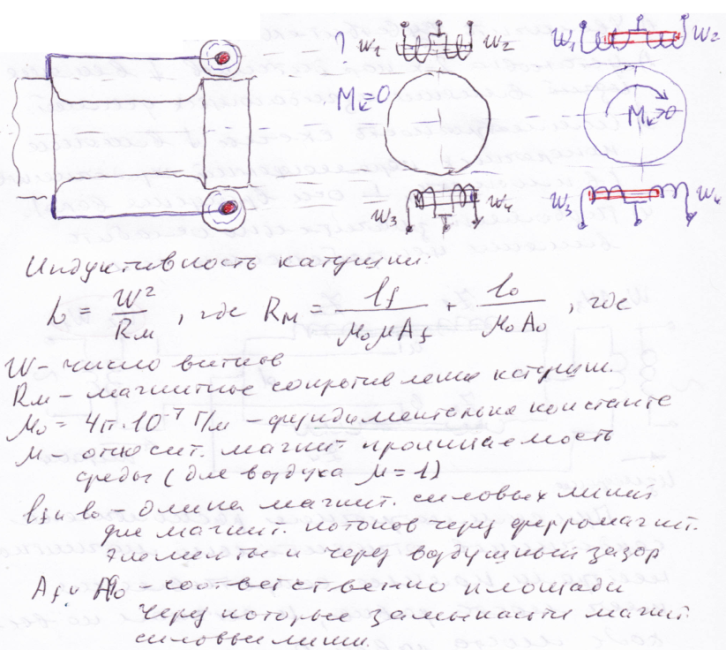 ? W₁ W₂ W₁ W₂
Mк=0 Mк>0
W₃ W₄ W₃ W₄
Индуктивность катушки:
L = W²/Rм , где Rм = lf/(μ₀μAf) + l₀/(μ₀A₀) , где
W - число витков
Rм - магнитное сопротивление катушки.
μ₀ = 4π·10⁻⁷ Г/м - фундаментальная константа
μ - относит. магнит проницаемость
среды (для воздуха μ=1)
lf и l₀ - длина магнит. силовых линий
для магнит. потоков через ферромагнит.
элементы и через воздушный зазор
Af и A₀ - соответственно площади
через которые замыкаются магнит.
силовые линии.